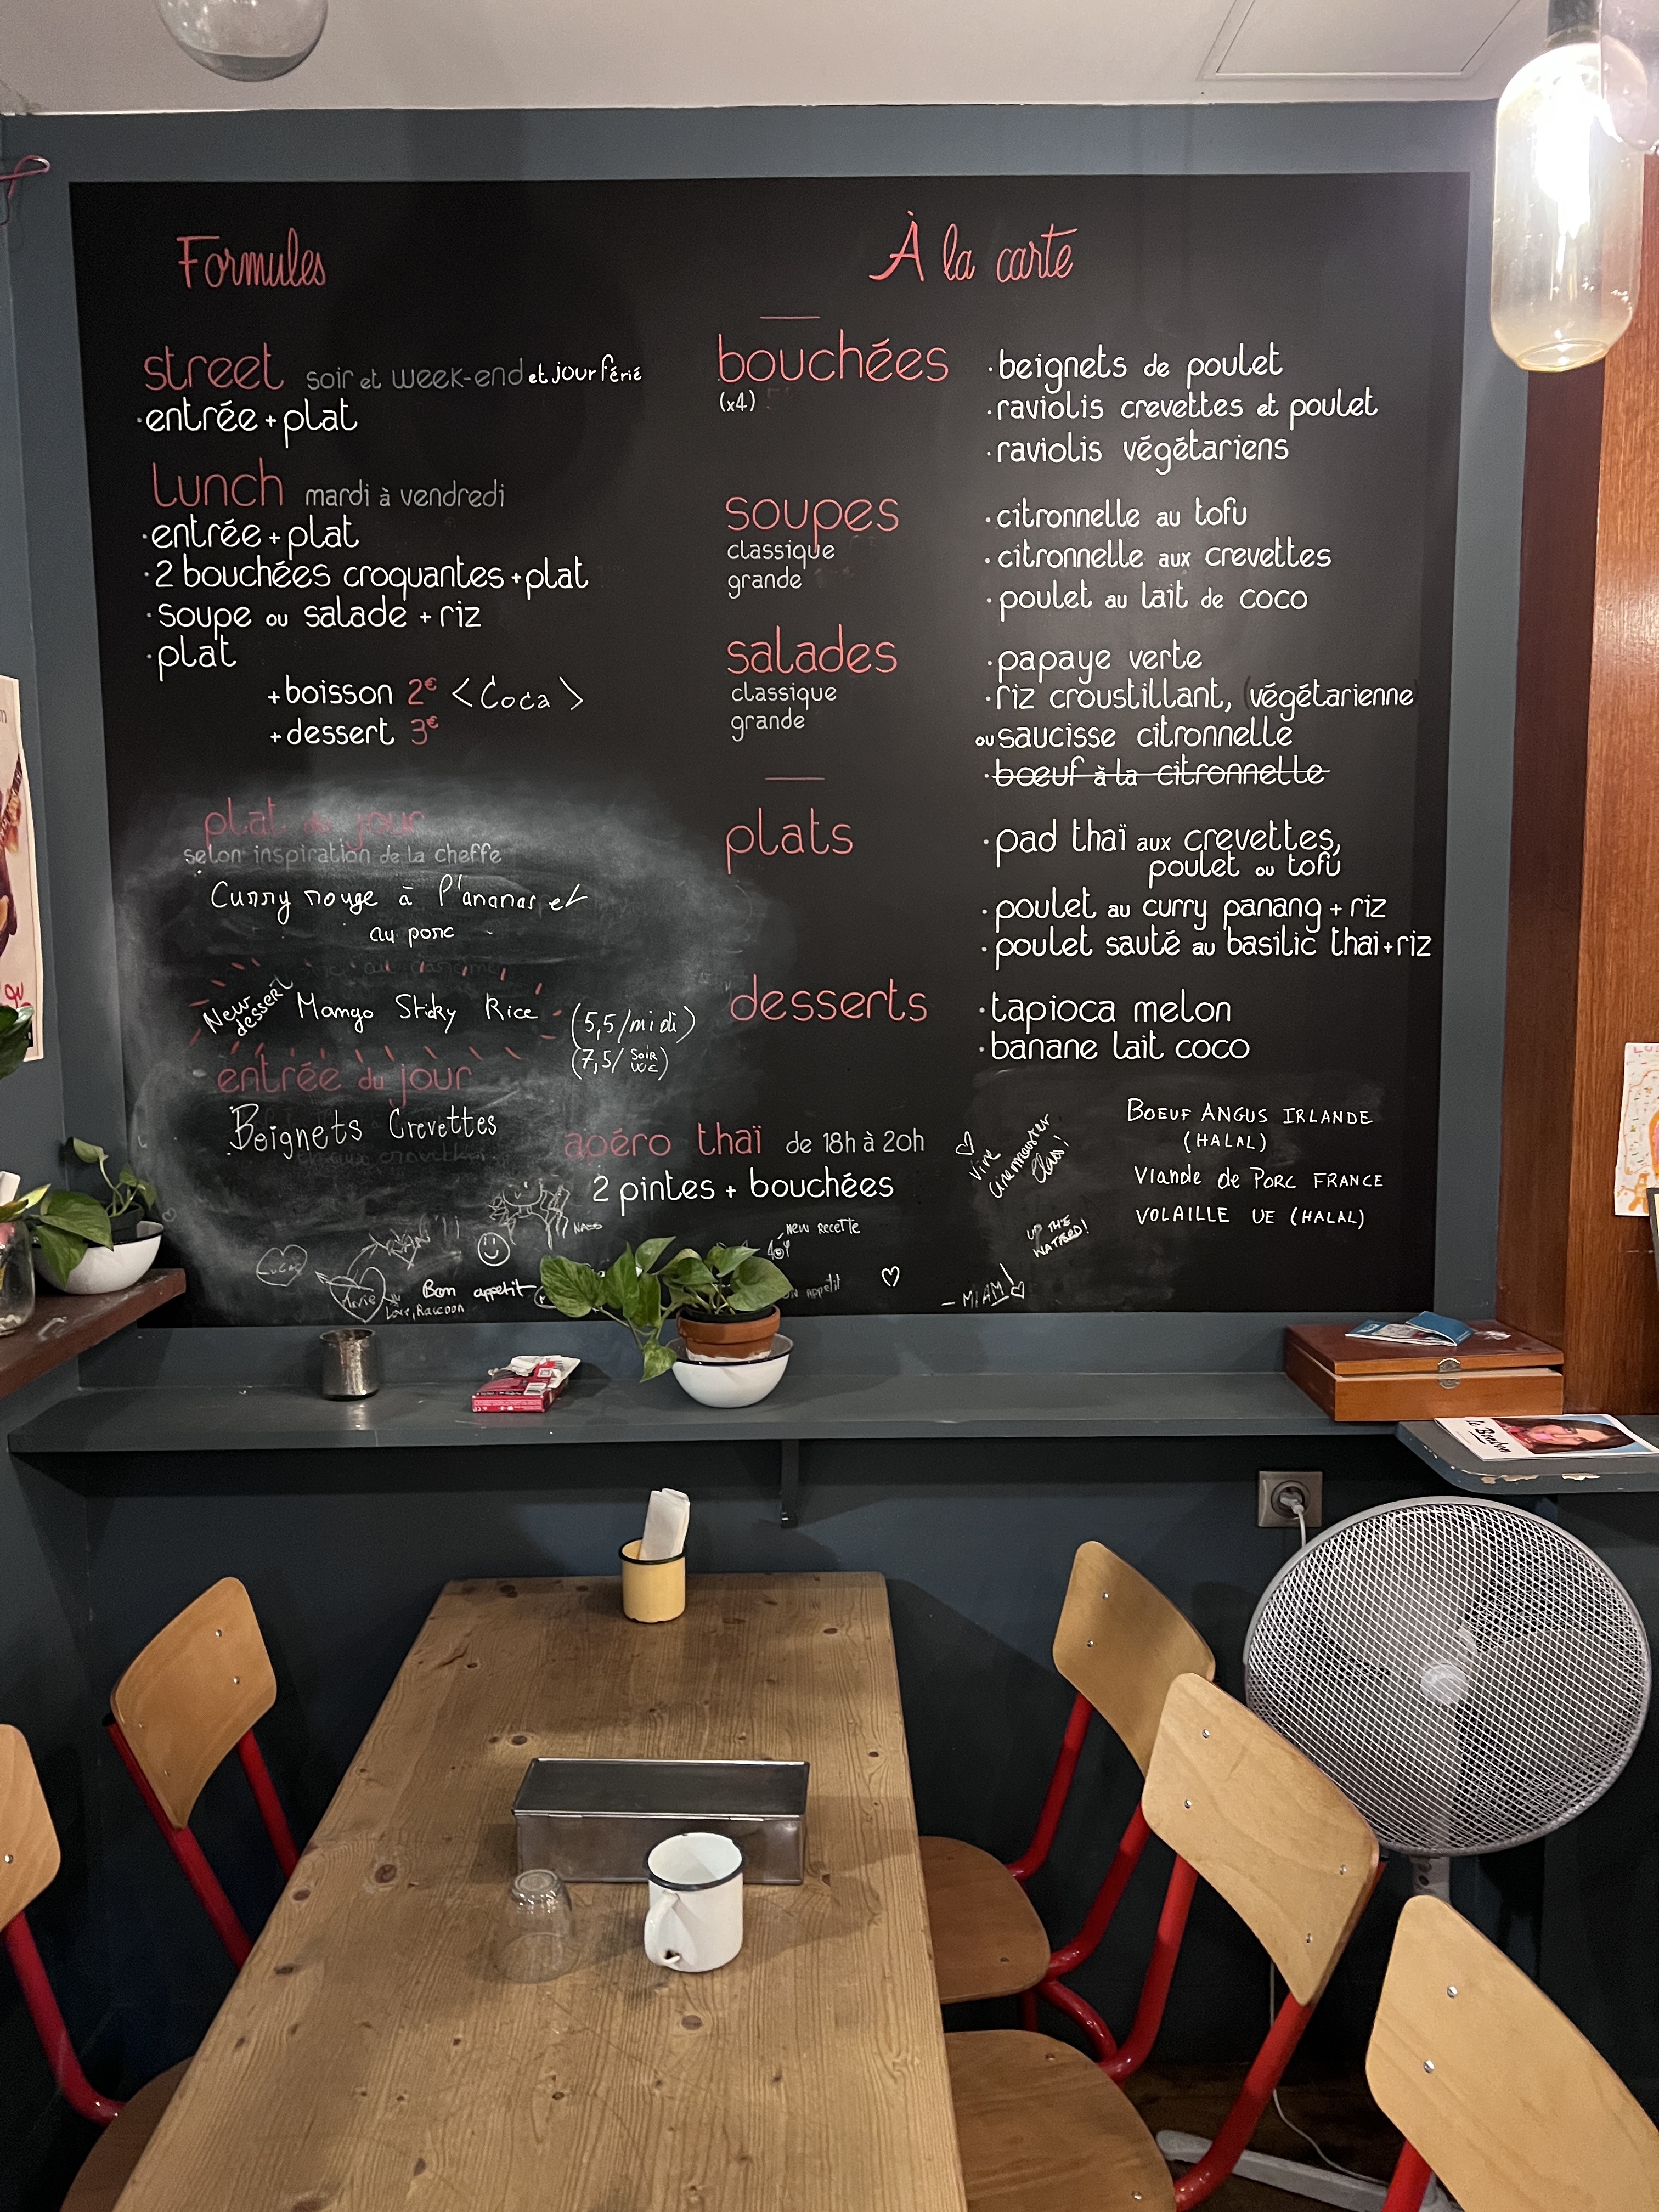 Formules
street soir et week-end et jour férié
·entrée + plat
Lunch mardi à vendredi
·entrée + plat
·2 bouchées croquantes + plat
·soupe ou salade + riz
·plat
+boisson 2€ <Coca>
+dessert 3€
plat du jour
selon inspiration de la cheffe
Curry rouge à l'ananas et
au porc
New dessert Mango Sticky Rice (5,5/midi)
(7,5/ soir
we)
entrée du jour
Beignets Crevettes
À la carte
bouchées
(x4)
·beignets de poulet
·raviolis crevettes et poulet
·raviolis végétariens
soupes
classique
grande
·citronnelle au tofu
·citronnelle aux crevettes
·poulet au lait de coco
salades
classique
grande
·papaye verte
·riz croustillant, (végétarienne
ou saucisse citronnelle
·boeuf à la citronnelle
plats
·pad thaï aux crevettes,
poulet ou tofu
·poulet au curry panang + riz
·poulet sauté au basilic thai+riz
desserts
·tapioca melon
·banane lait coco
apéro thaï de 18h à 20h
2 pintes + bouchées
BOEUF ANGUS IRLANDE
(HALAL)
Viande de PORC FRANCE
VOLAILLE UE (HALAL)
Vive
new recette
UP THE
Lucas
Bon appetit
Love, Raccoon
appetit
- MIAM!
Le Bonbon